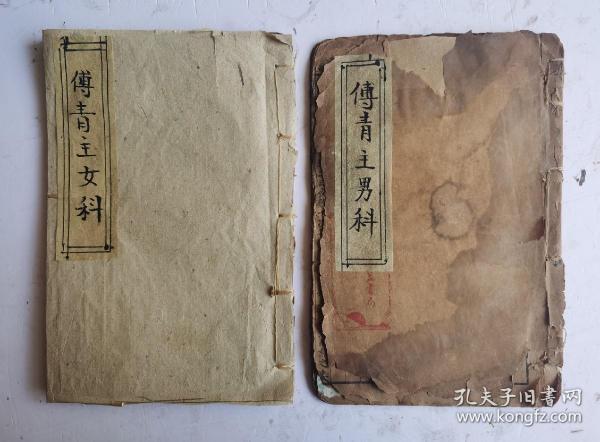 傅青主女科
傅青主男科
孔夫子旧书网
www.kongfz.com